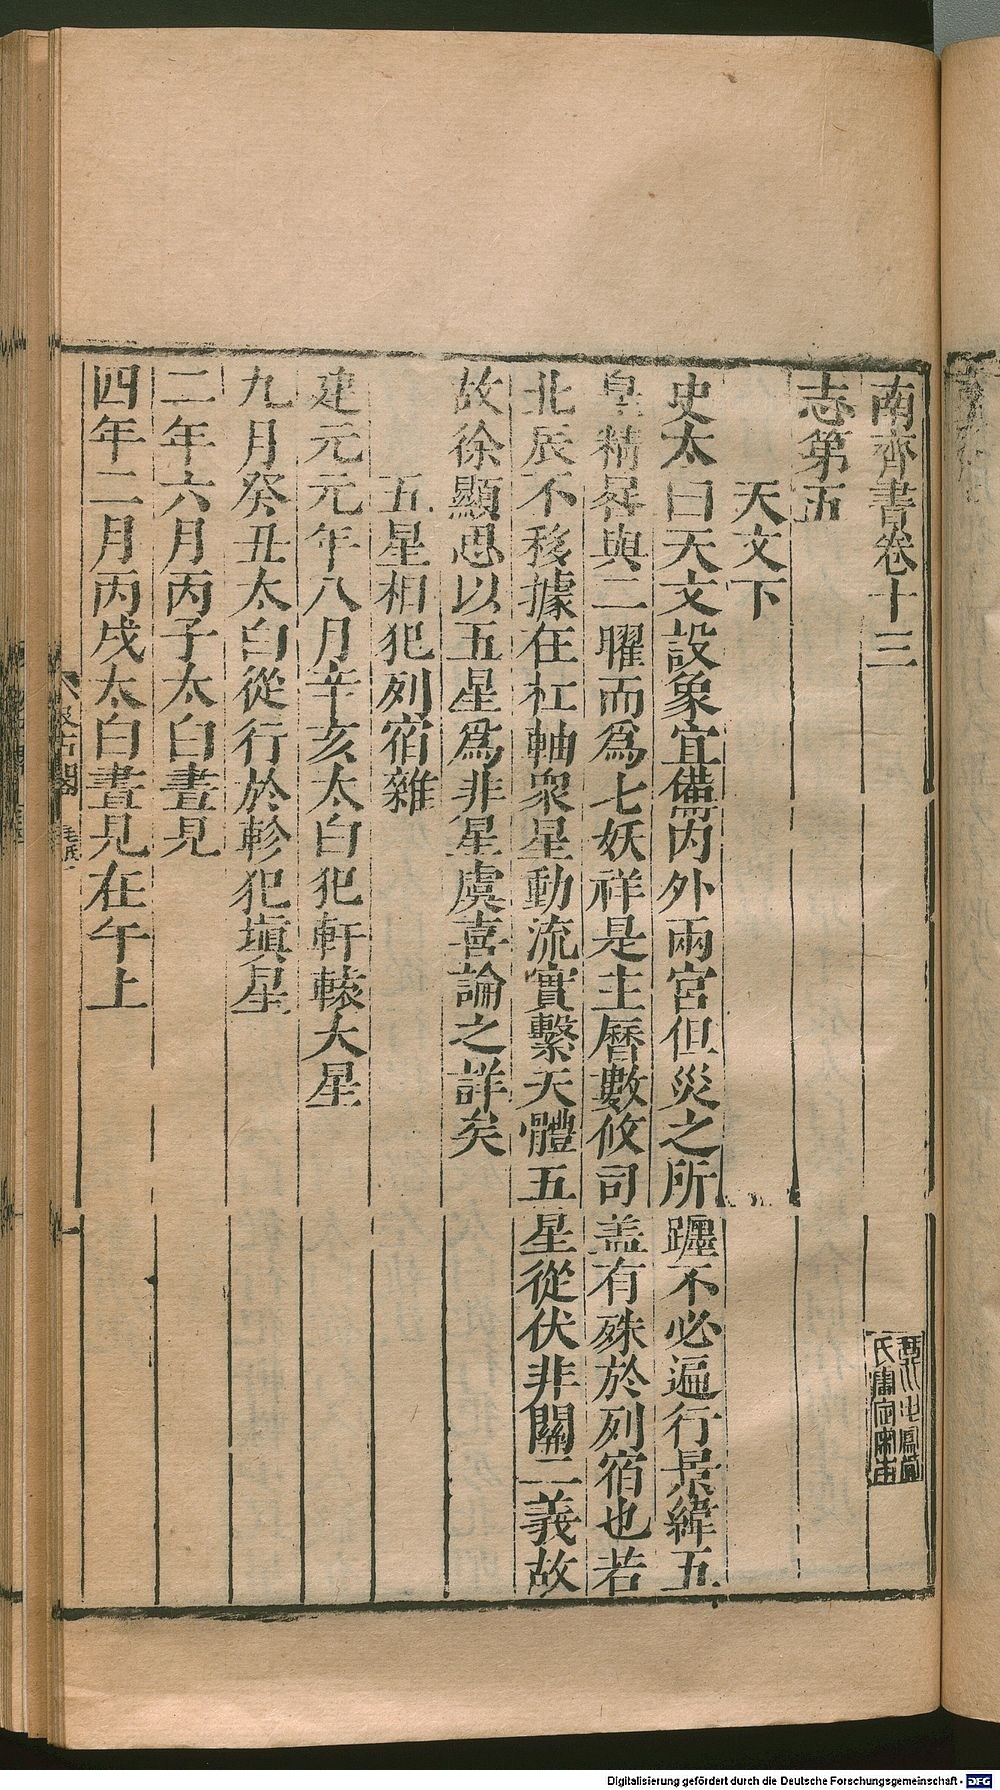 南齊書卷十三
志第五
天文下
史太曰天文設象宜備内外兩宮但災之所躔不必遍行景緯五
皇精晷與二曜而爲七妖祥是主曆數攸司盖有殊於列宿也若
北辰不移據在杠軸衆星動流實繫天體五星從伏非關二義故
故徐顯思以五星爲非星虞喜論之詳矣
五星相犯列宿雜
建元元年八月辛亥太白犯軒轅大星
九月癸丑太白從行於軫犯塡星
二年六月丙子太白晝見
四年二月丙戌太白晝見在午上
Digitalisierung gefördert durch die Deutsche Forschungsgemeinschaft - DFG